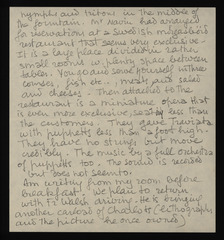 nymphs and tritons in the middle of
the fountain. Mr had arranged
for reservations at a Swedish
restaurant that seems very exclusive.
It is a large place divided into rather
small rooms w. plenty space between
tables. You go and serve yourself in three
courses, fish etc., meats and salad
and cheese. Then attached to the
restaurant is a miniature opera that
is even more exclusive, seats less than
the customers. They gave Turandot
with puppets less than a foot high.
They have no strings but move
credibly. The music by a full orchestra
of puppets too. The sound is records
but does not seem to.
Am writing from my room before
breakfast. We plan to return
with F. Walsh driving. He is bringing
another carload of Charlots (lithograph
and the picture he once owned)